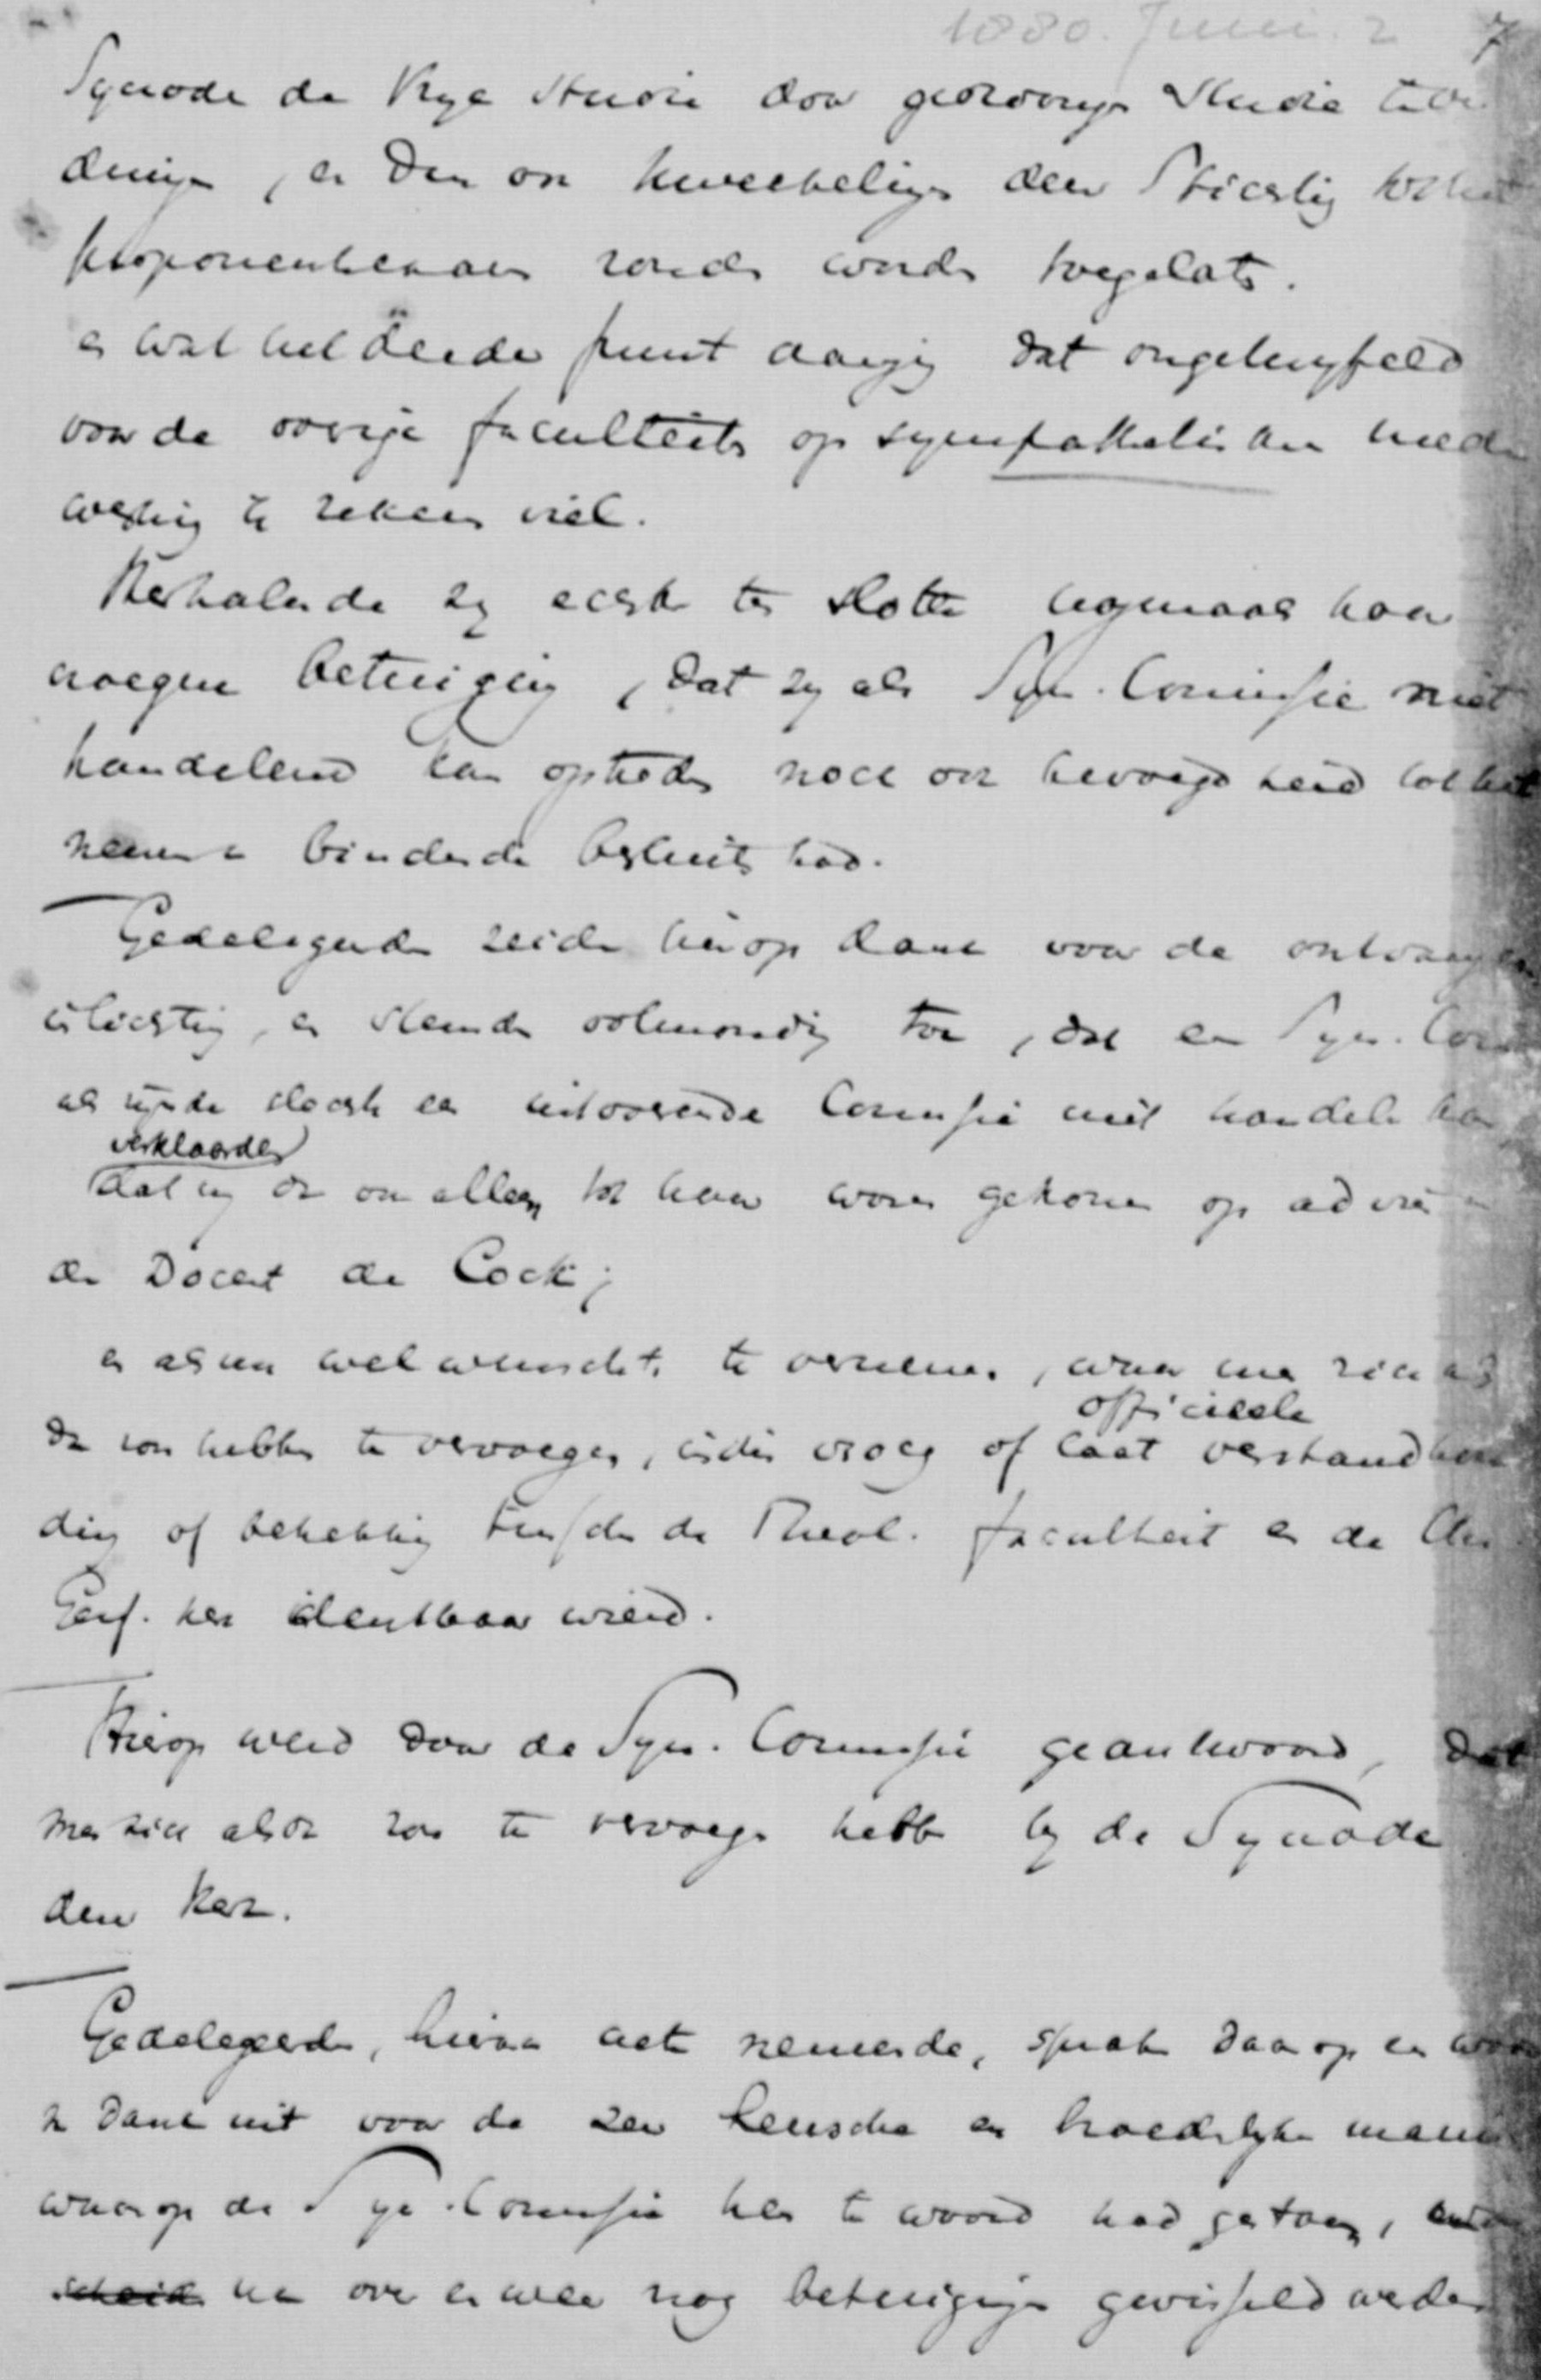 1880. Juni. 2 7
Synode de Vrye Studie door gedwongen Studie te
dringen, en dan ook kweekelingen dier Stichting tot het
proponentsexamen zoude worden toegelaten.
en wat het derde punt aanging dat ongetwyfeld
voor de overige faculteiten op sympathetische mede
werking te rekenen viel.
Herhalende zy echter ten slotte nogmaals haar
vroegere betuiging, dat zy als Syn. Comissie niet
handelend kan optreden noch ook bevoegdheid tot het
nemen bindende besluiten had.
Gedelegeerden zeiden hierop dank voor de ontvangen
inlichting, en stemden volmondig toe, dat een Syn. Com
als zynde slechts een uitvoerende Comissie niet handelen kan
verklaarden
dat zy dan ook alleen tot haar waren gekomen op advies
den Docent de Cock;
en alsnu wel wenschten te vernemen, waar men zich
dan zou hebben te vervoegen, indien vroeg of laat verstandhou
officieele
ding of betrekking tusschen de Theol. faculteit en de Chr.
Geref. kerk denkbaar wierd.
Hierop werd door de Syn. Comissie geantwoord, dat
men zich alsdan zou te vervoegen hebben by de Synode
dier kerk.
Gedelegeerden, hiervan acte nemende, spraken daarop een woord
van dank uit voor de zeer heusche en broederlyke manier
waarop de Syn. Comissie hen te woord had gestaan,
nog betuigingen gewisseld werden